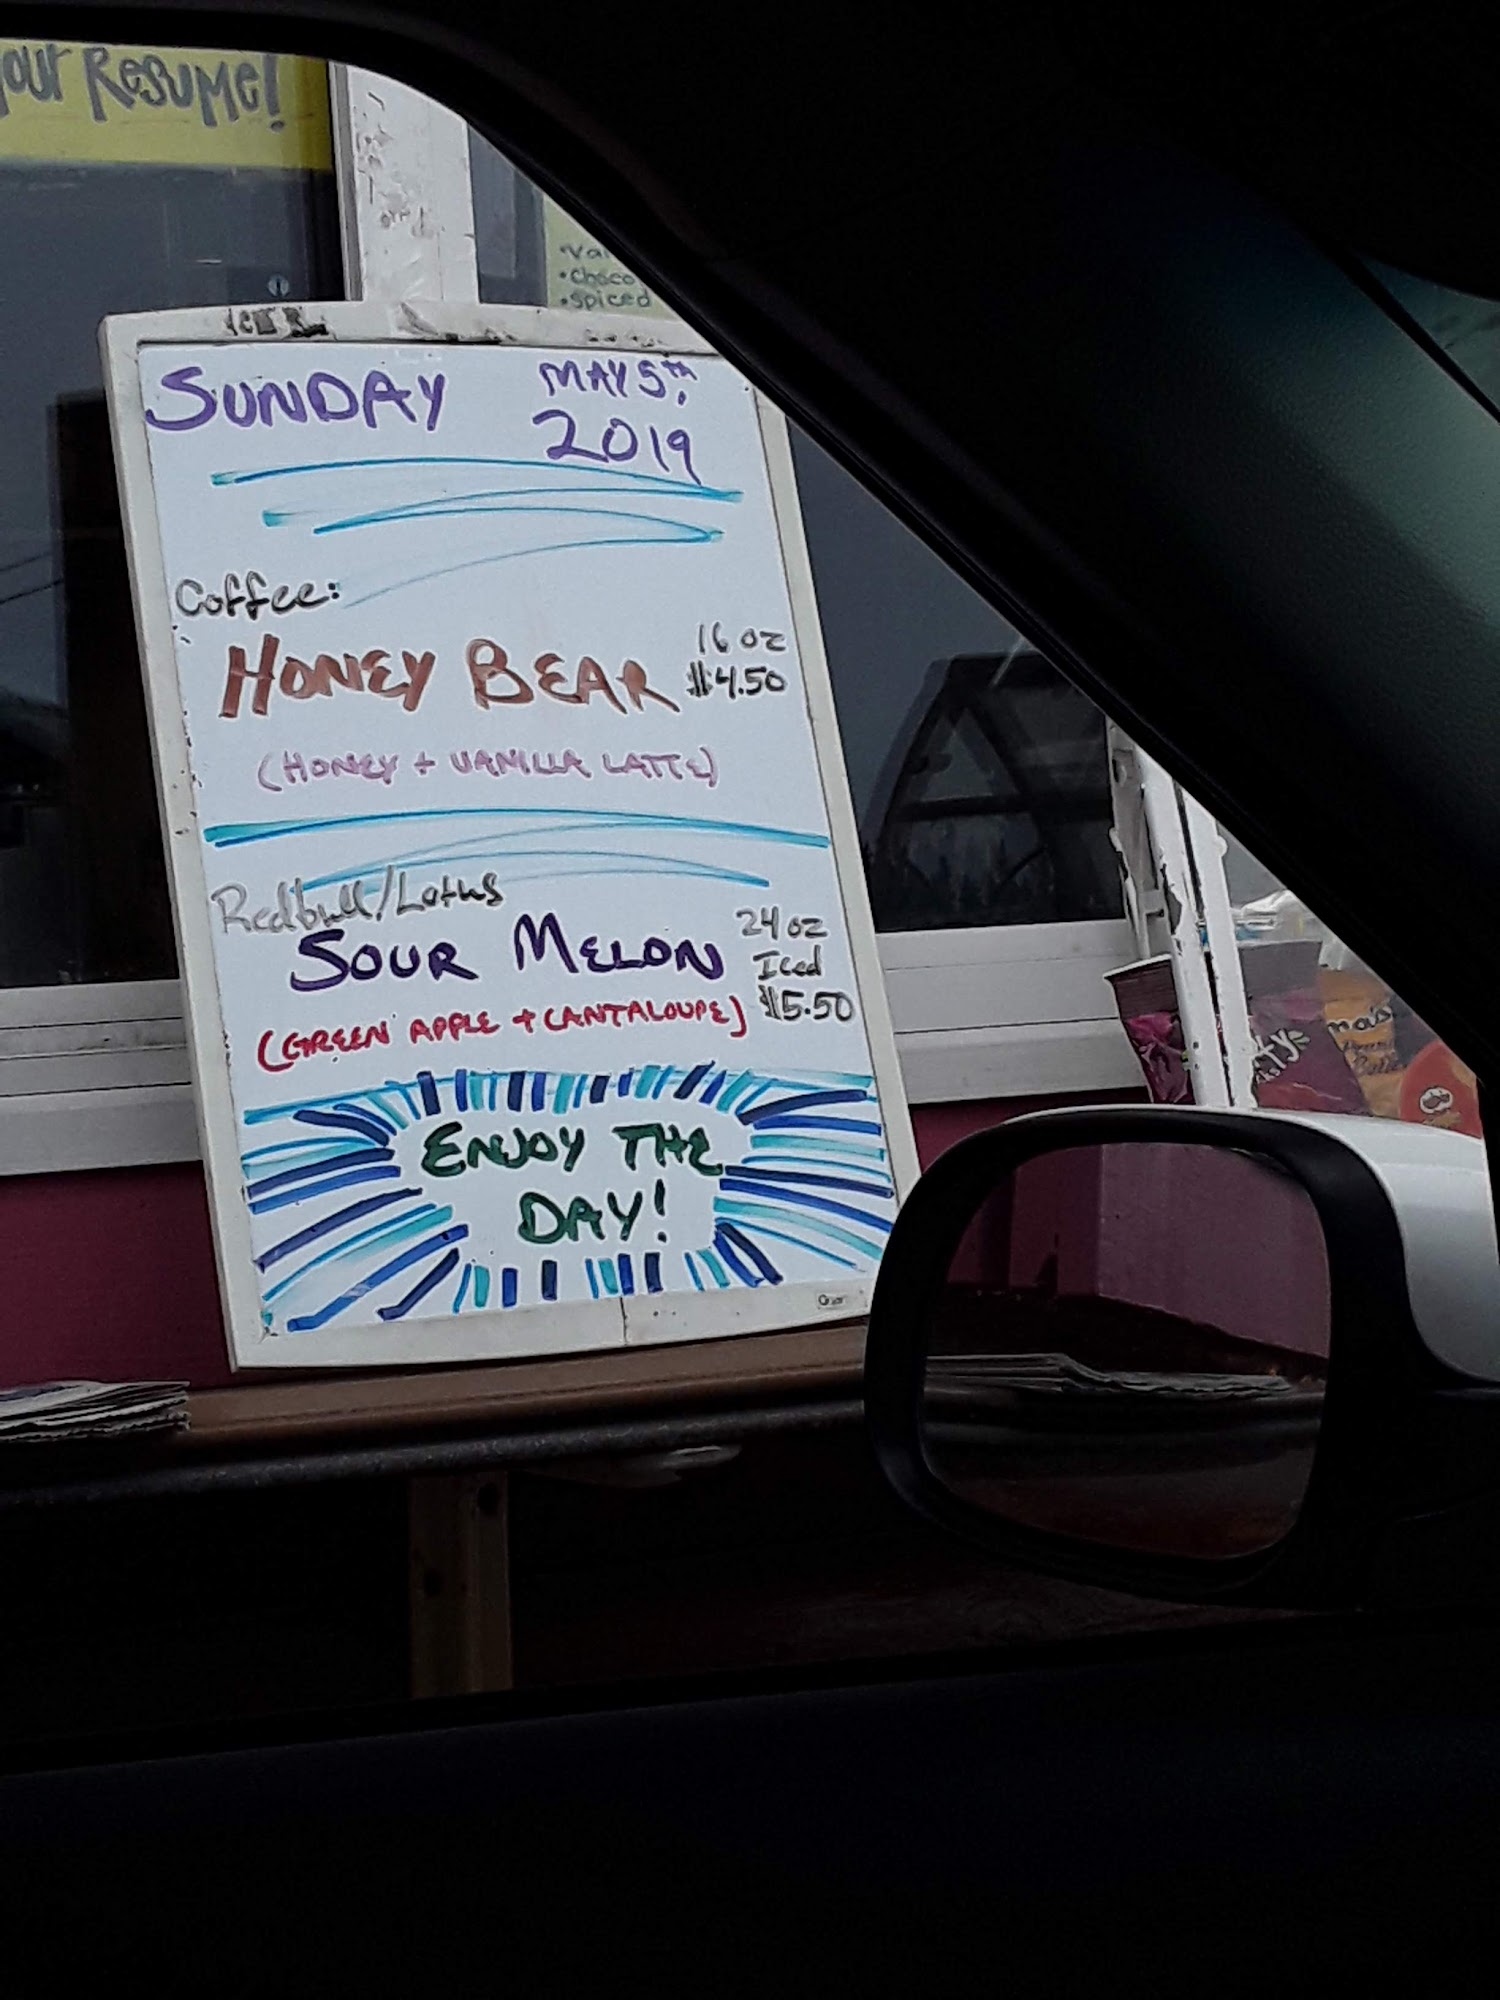 our Resume!
• choco
• spiced
SUNDAY MAY 5TH, 2019
Coffee:
HONEY BEAR
16 oz
$4.50
(HONEY + VANILLA LATTE)
Redbull/Lotus
SOUR MELON
24 oz
Iced
$5.50
(GREEN APPLE + CANTALOUPE)
ENJOY THE
DAY!